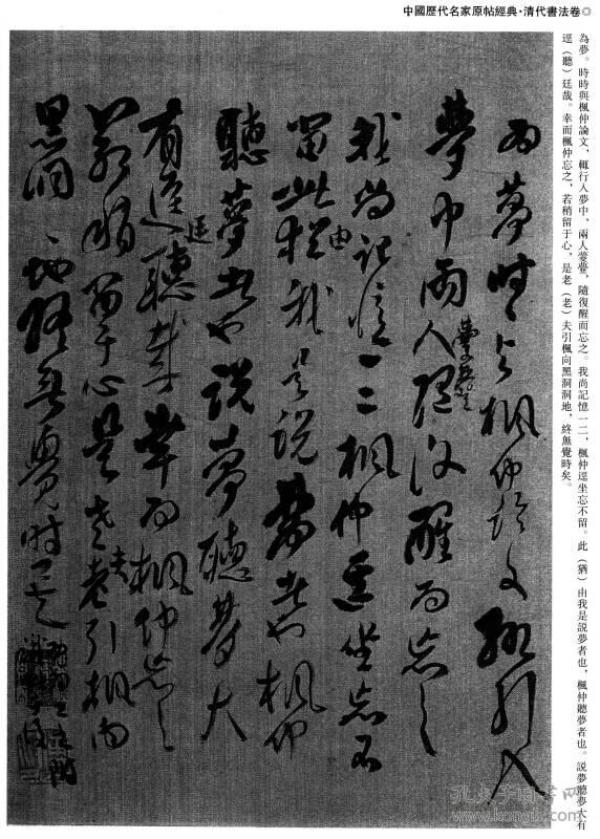 中國歷代名家原帖經典·清代書法卷◎
為夢。時時與楓仲論文，輒行人夢中，兩人蒙瞢，隨復醒而忘之。我尚記憶一二，楓仲逕坐忘不留。此（猶）由我是説夢者也，楓仲聽夢者也。説夢聽夢大有
逕（聽）廷哉。幸而楓仲忘之，若稍留于心，是老（老）夫引楓向黑洞洞地，終無覺時矣。
為夢時〻與楓仲論文輒引入
夢中兩人隨復醒而忘之
我尚記憶一二楓仲逕坐忘不
留此猶由我是説夢者也楓仲
聽夢者也説夢聽夢大
有逕聽廷哉幸而楓仲忘之
若稍留于心是老老夫引楓向
黑洞〻地終無覺時矣
孔夫子旧书网
www.kongfz.com